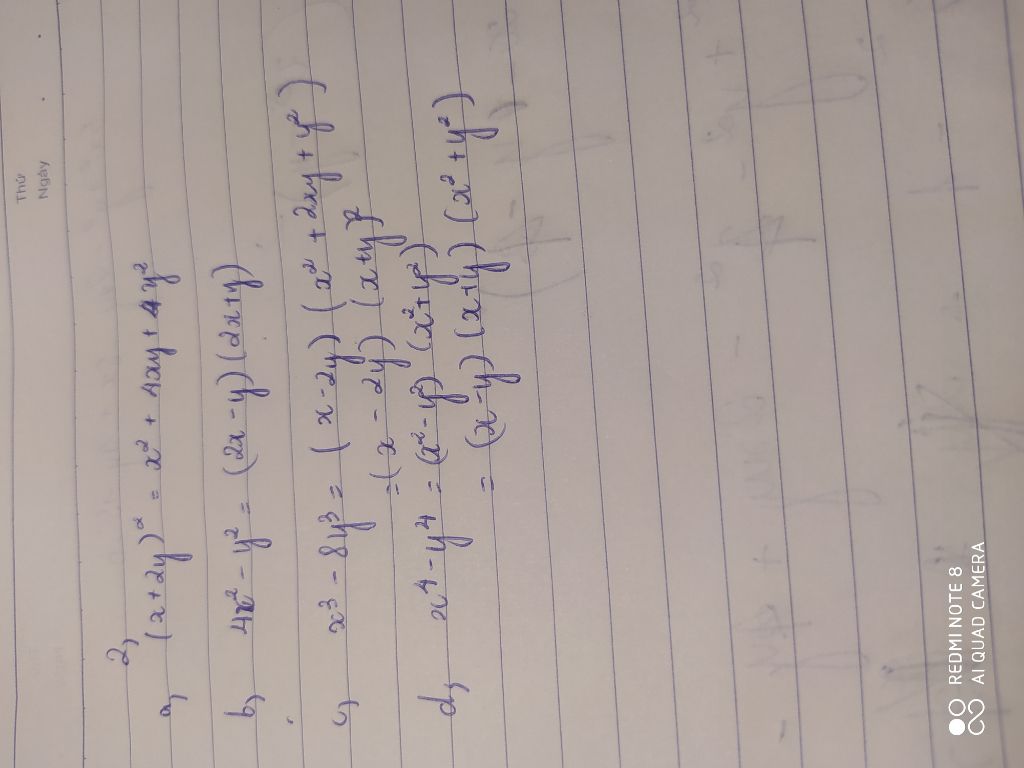 Thứ
Ngày
2,
a, (x+2y)² = x² + 4xy + 4y²
b, 4x² - y² = (2x - y)(2x+y)
c, x³ - 8y³ = (x - 2y)(x² + 2xy + y²)
= (x - 2y) (x+y)²
d, x⁴ - y⁴ = (x² - y²) (x²+y²)
= (x-y) (x+y) (x² + y²)
REDMI NOTE 8
AI QUAD CAMERA